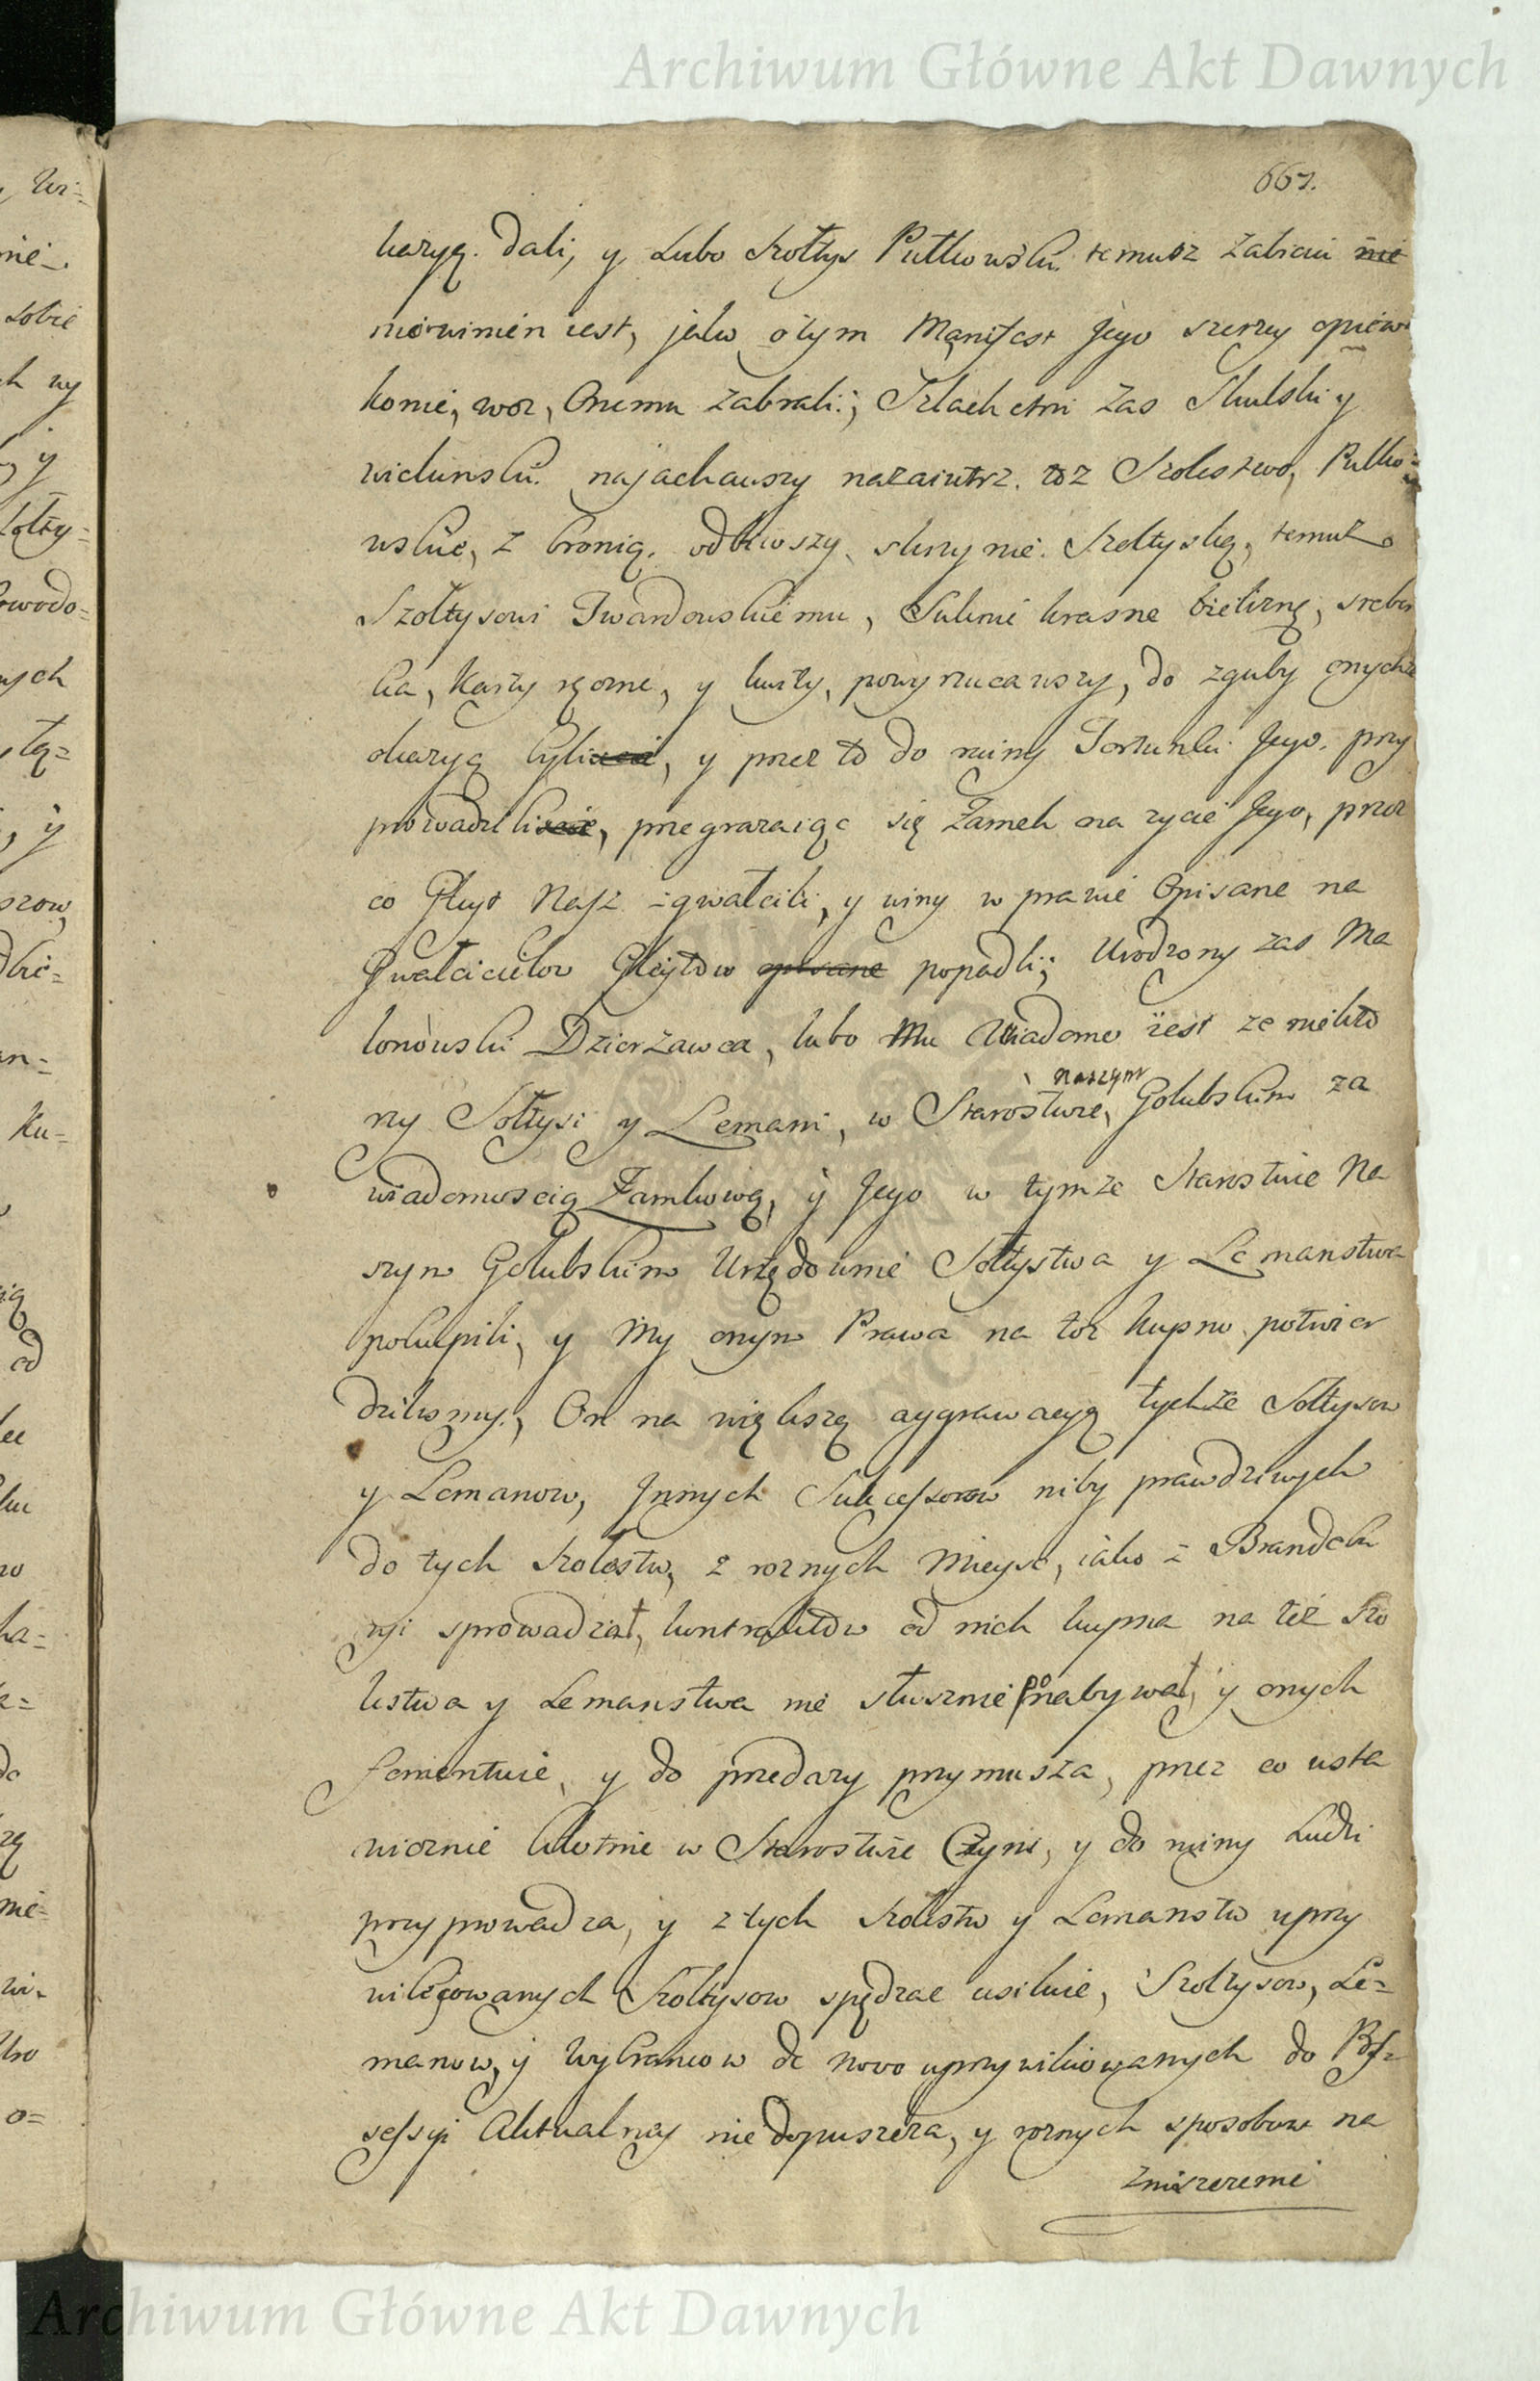 Archiwum Główne Akt Dawnych
667.
kazyą. dali, y Lubo Szołtys Pułkowski. temusz zabiciu nie
niewinien iest, jako otym Manifest Jego szerzey opiewa
konie, woz, Onemu zabrali; Szlachetni zas Skulski y
najachawszy nazaiutrz. toz Szolestwo, Pułko=
wskie, z bronią. odbiwszy, skrzynie. Szołtyską, temuz
Szołtysowi Twardowskiemu, Suknie krasne bieliznę, srebr
ka, Karty ręczne, y kwity, powyrzucawszy, do zguby onychze
okazyą byli, y przez to do ruiny Fortunki Jego. przy
prowadzili, pregrazaiąc się Zamek na zycie Jego, przez
co Gleyt Nasz zgwałcili, y winy w prawie Opisane na
Gwałcicielow Gleytow opisane popadli; Urodzony zas Ma
lonowski Dzierzawca, lubo Mu Wiadomo iest ze niekto
naszym
rzy Sołtysi y Lemani, w Starostwie, Golubskim za
wiadomoscią Zamkową, y Jego w tymze Starostwie Na
szym Golubskim Urzędownie Sołtystwa y Lemanstwa
pokupili, y My onym Prawa na toz kupno potwier
dzilismy, On na większą aggrawacyą tychze Sołtysow
y Lemanow, Jnnych Sukcessorow niby prawdziwych
do tych Szolestw, z roznych Mieysc, iako z Brandebu
ryi sprowadzał, kontraktow od nich kupna na też Szo
lestwa y Lemanstwa nie słusznie ponabywał, y onych
fomentuie, y do przedazy przymusza, przez co usta
wicznie kłotnie w Starostwie Czyni, y do ruiny Ludzi
przyprowadza, y z tych Szolestw y Lemanstw uprzy
wileiowanych Szołtysow spędzac usiłuie, Szołtysow, Le=
manow, y Wybrancow de novo uprzywileiowanych do Pos=
sessyi Aktualney nie dopuszcza, y roznych sposobow na
zniszczenie
Archiwum Główne Akt Dawnych